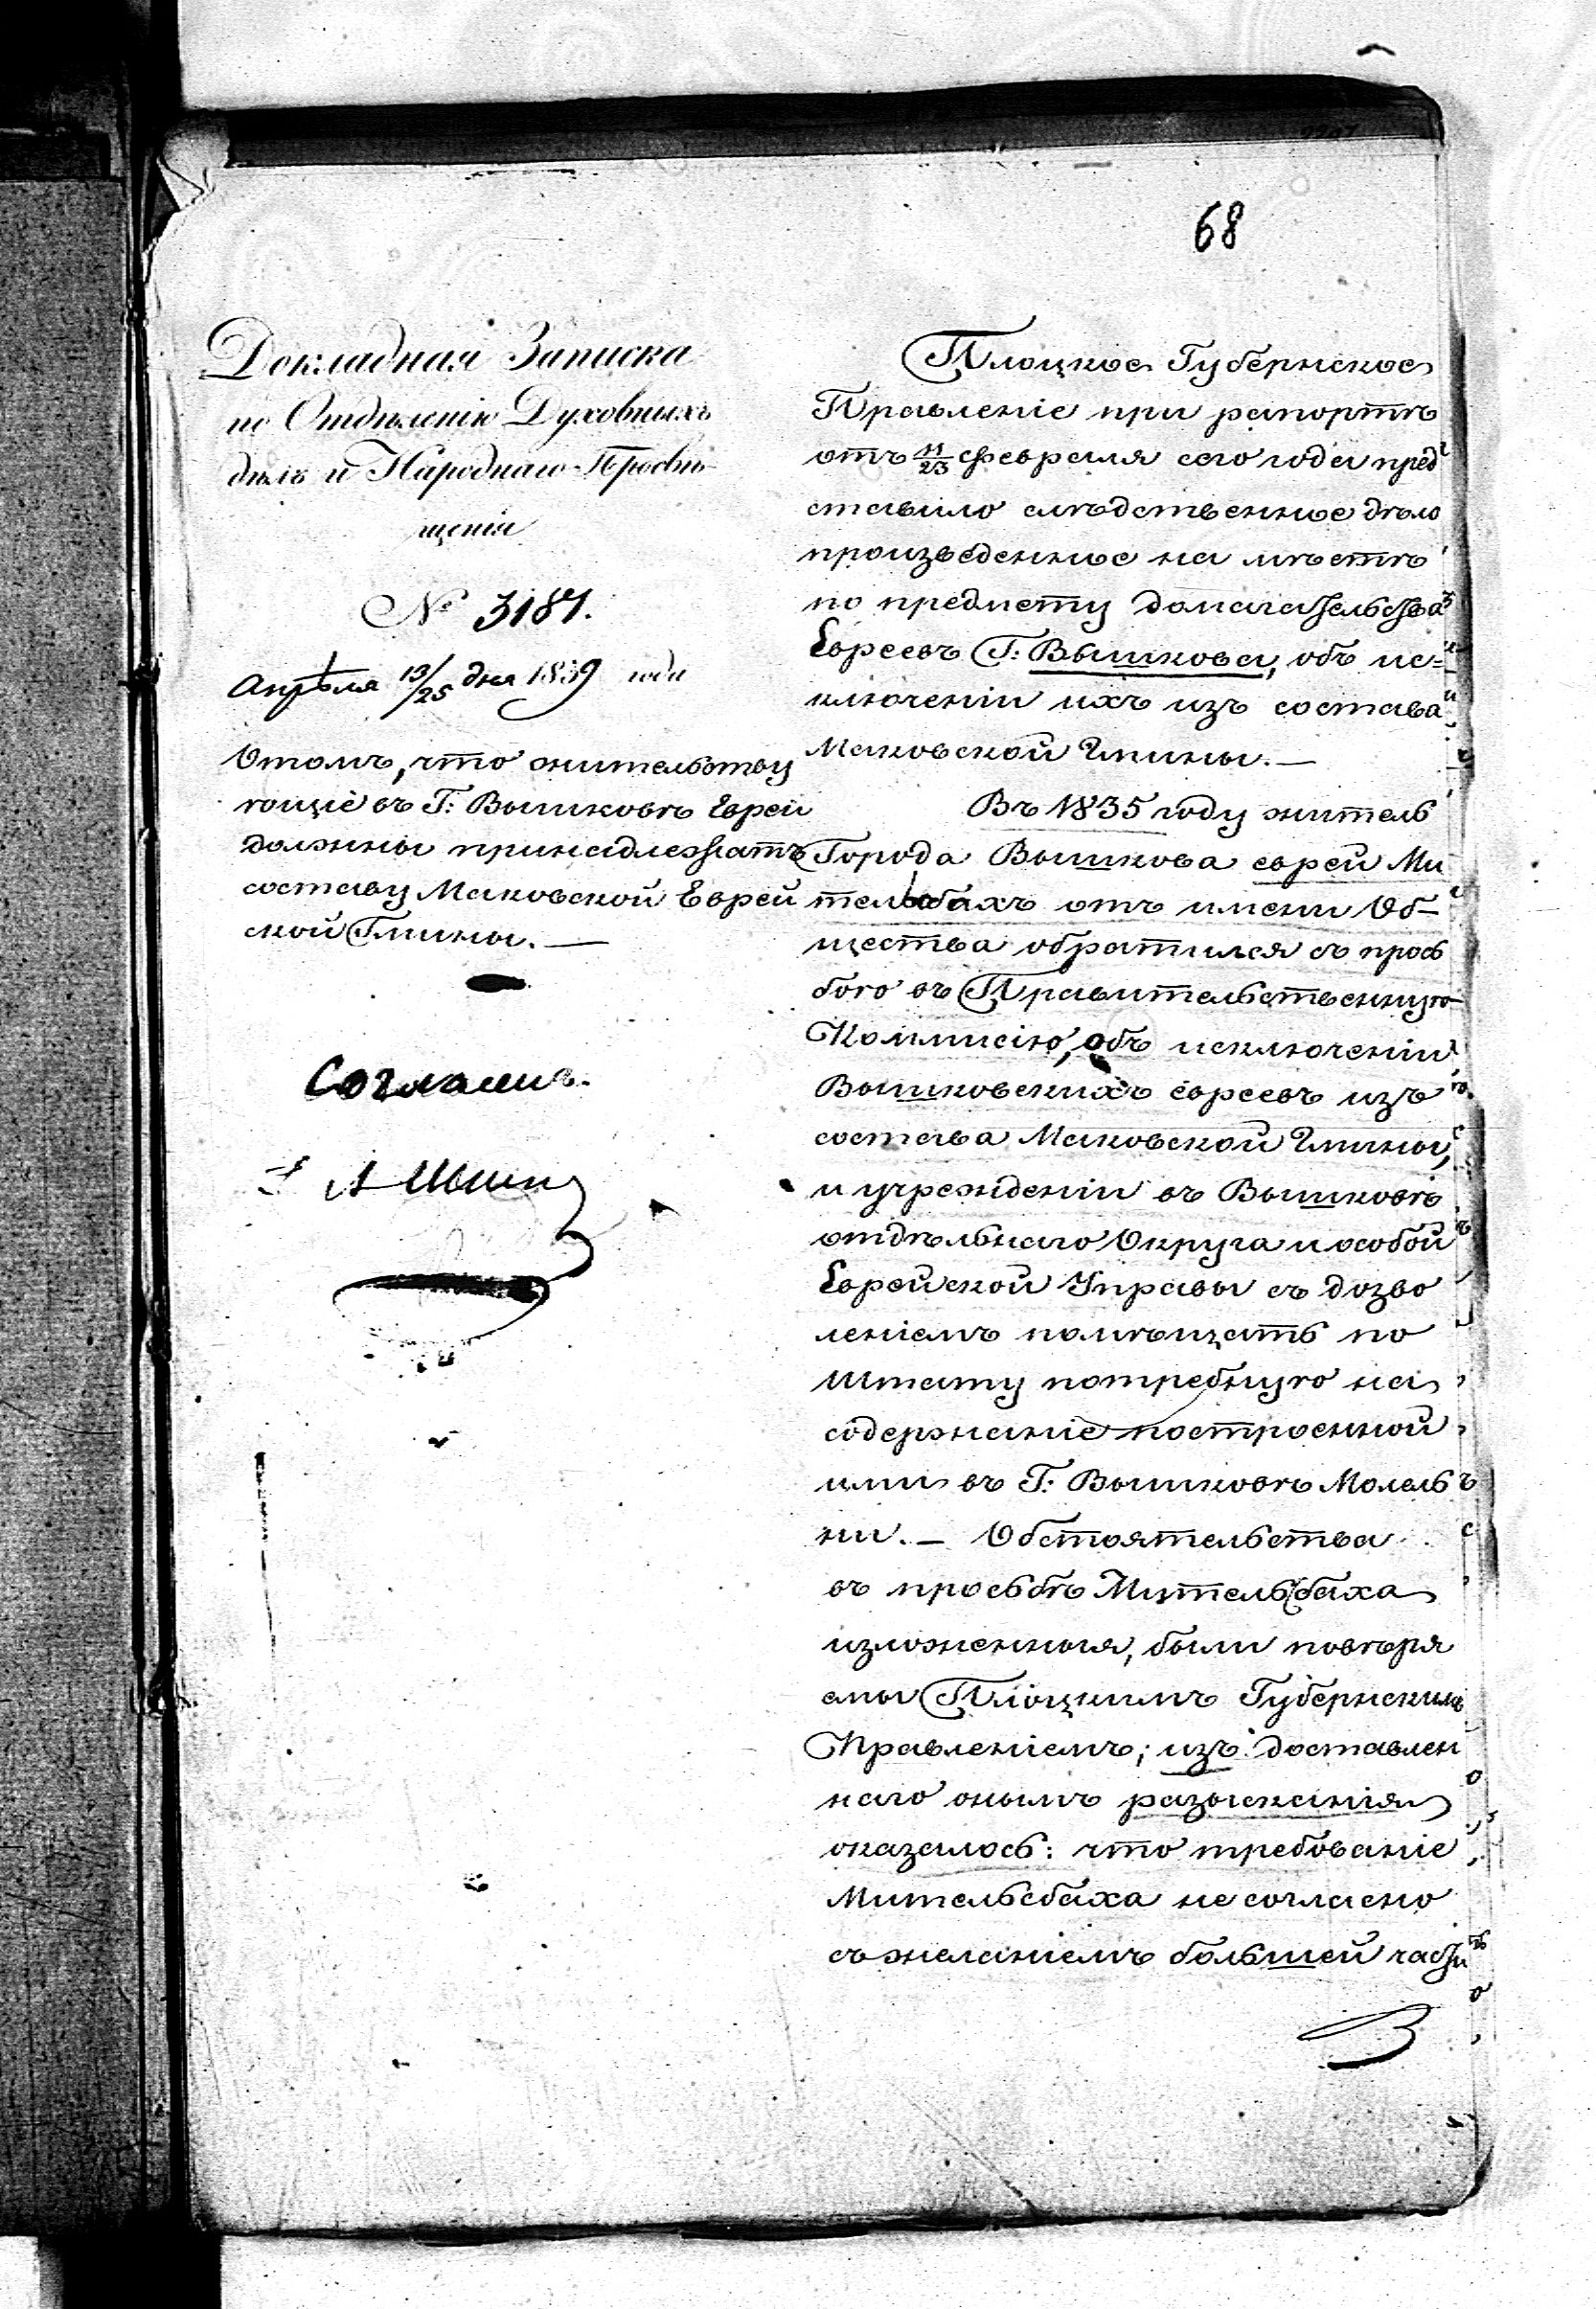 68
Докладная Записка
по Отдѣленію Духовныхъ
дѣлъ и Народнаго Просвѣ-
щенія
№ 3187.
Апрѣля 13/25 дня 1839 года
О томъ, что жительству
ющіе въ Г: Вышковѣ Евреи
должны принадлежать
составу Маковской Еврей
ской Гмины. —
Согласенъ.
Плоцкое Губернское
Правленіе при рапортѣ
отъ 11/23 Февраля сего года пред
ставило слѣдственное дѣло
произведенное на мѣстѣ
по предмету домагательства
Евреевъ Г: Вышкова, объ ис=
ключеніи ихъ изъ состава
Маковской Гмины. —
Въ 1835 году житель
Города Вышкова еврей Ми
тельсбахъ отъ имени Об-
щества обратился съ прось
бою въ Правительственную
Коммисію, объ исключеніи
Вышковскихъ евреевъ изъ
состава Маковской Гмины,
и учрежденіи въ Вышковѣ
отдѣльнаго Округа и особой
Еврейской Управы съ дозво
леніемъ помѣщать по
Штату потребную на
содержаніе построенной
ими въ Г: Вышковѣ Молель
ни. — Обстоятельства
въ просьбѣ Мительсбаха
изложенныя, были повѣря
емы Плоцкимъ Губернскимъ
Правленіемъ; изъ доставлен
наго онымъ разысканія
оказалось: что требованіе
Мительсбаха не согласно
съ желаніемъ большей части